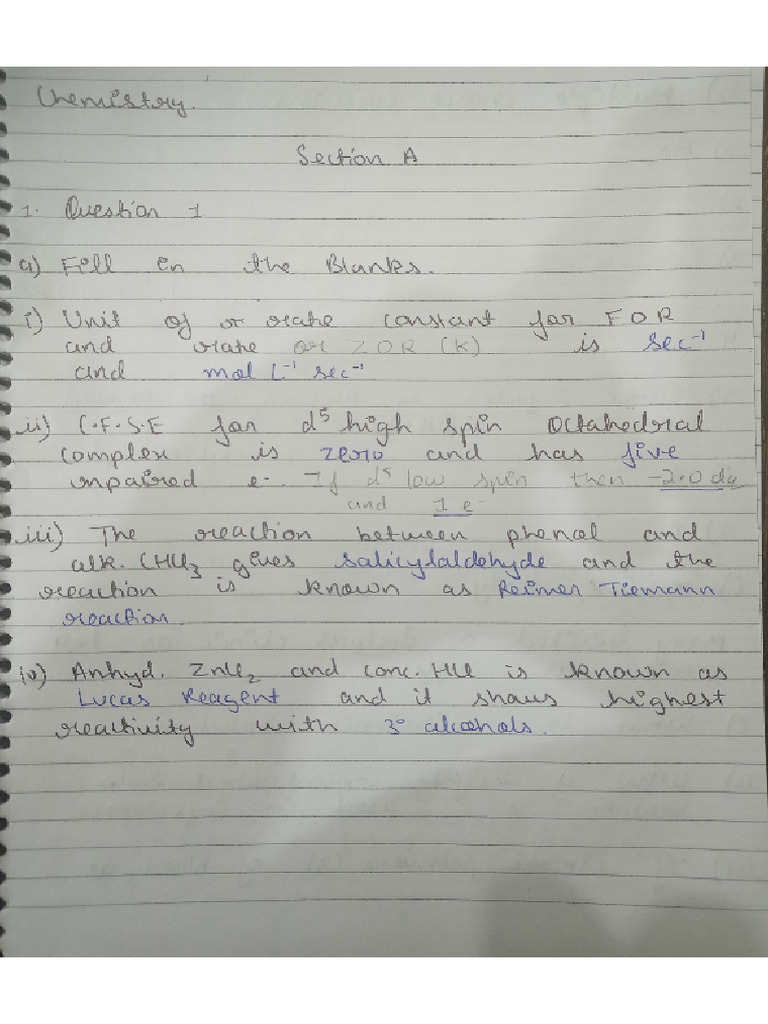 Chemistry.
Section A
1. Question 1
a) Fill in the Blanks.
i) Unit of r rate constant for FOR
and rate or ZOR (K) is sec⁻¹
and mol L⁻¹ sec⁻¹
ii) C.F.S.E for d⁵ high spin Octahedral
complex is zero and has five
unpaired e⁻. If d⁵ low spin then -2.0 dq
and 1 e⁻
iii) The reaction between phenol and
alk. CHCl₃ gives salicylaldehyde and the
reaction is known as Reimer Tiemann
reaction.
iv) Anhyd. ZnCl₂ and conc. HCl is known as
Lucas Reagent and it shows highest
reactivity with 3° alcohols.